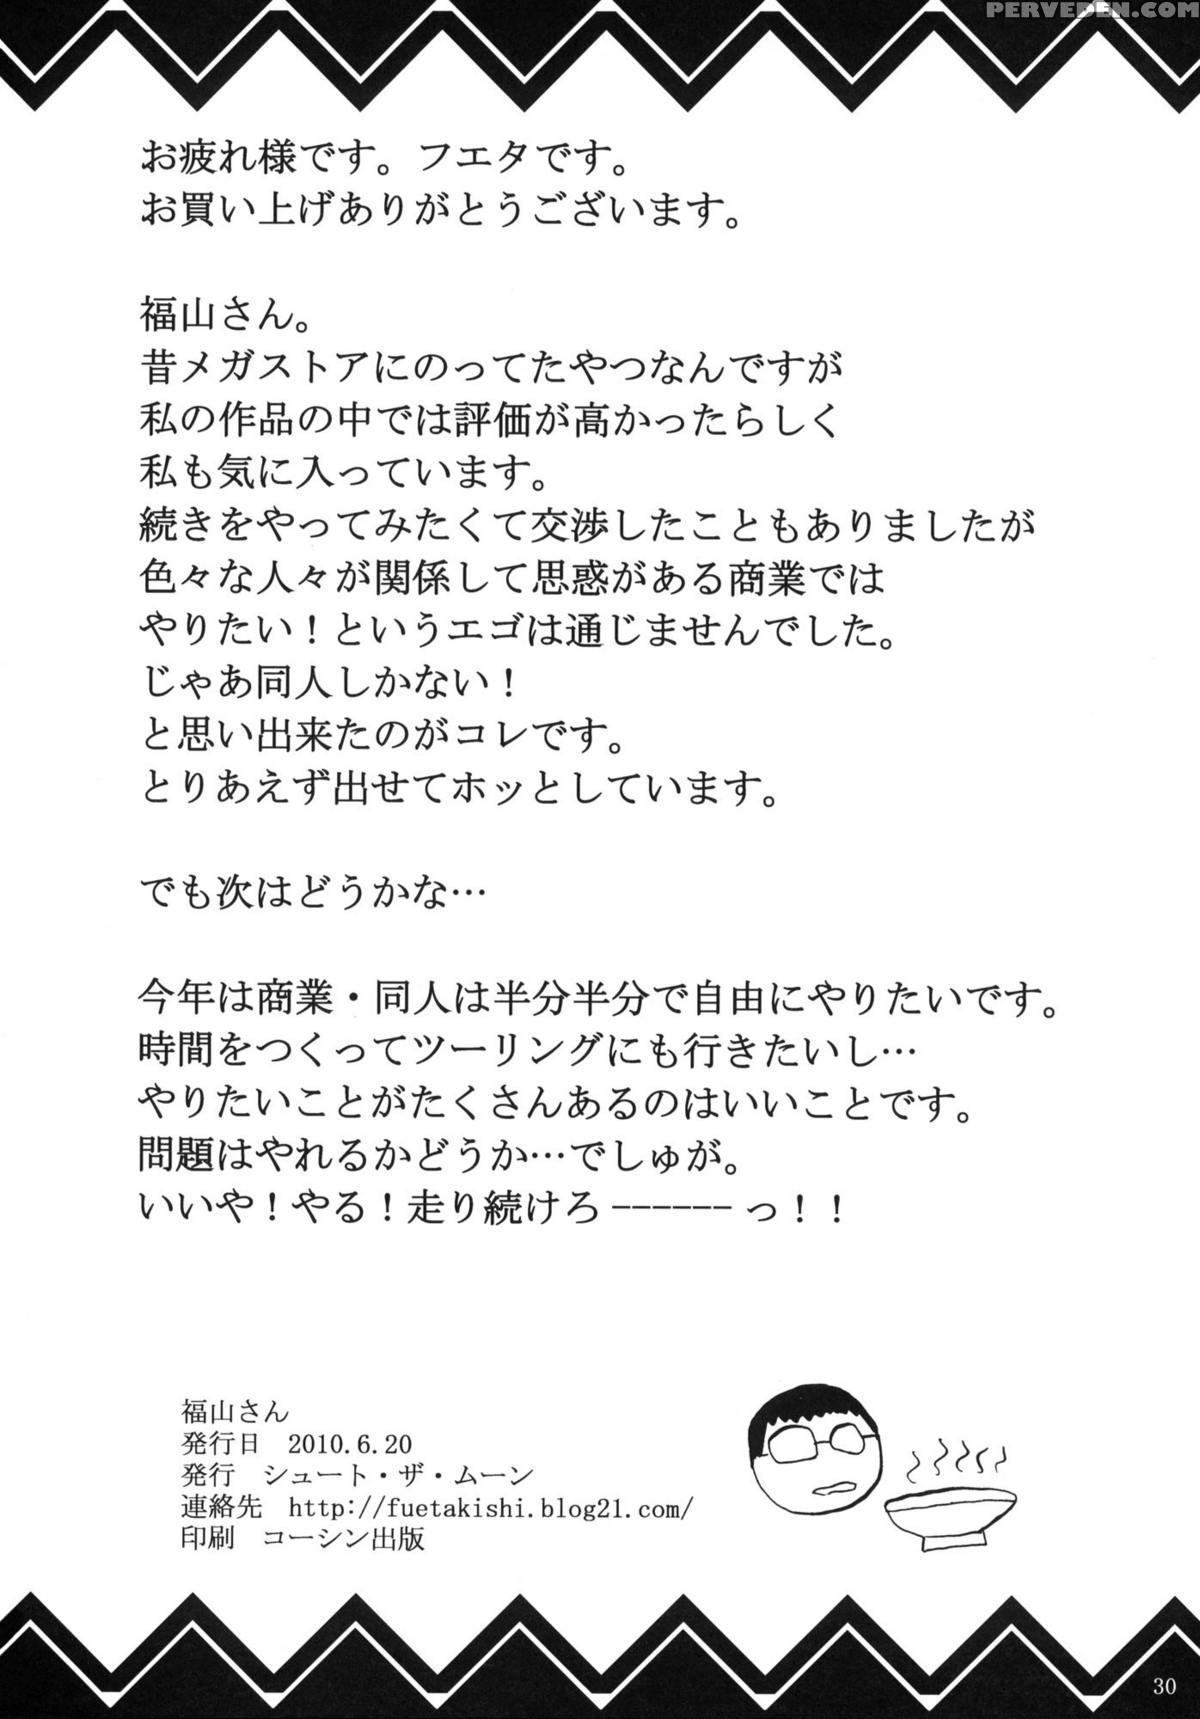 PERVEDEN.COM
お疲れ様です。フエタです。
お買い上げありがとうございます。
福山さん。
昔メガストアにのってたやつなんですが
私の作品の中では評価が高かったらしく
私も気に入っています。
続きをやってみたくて交渉したこともありましたが
色々な人々が関係して思惑がある商業では
やりたい！というエゴは通じませんでした。
じゃあ同人しかない！
と思い出来たのがコレです。
とりあえず出せてホッとしています。
でも次はどうかな…
今年は商業・同人は半分半分で自由にやりたいです。
時間をつくってツーリングにも行きたいし…
やりたいことがたくさんあるのはいいことです。
問題はやれるかどうか…でしゅが。
いいや！やる！走り続けろ------っ！！
福山さん
発行日　2010.6.20
発行　シュート・ザ・ムーン
連絡先　http://fuetakishi.blog21.com/
印刷　コーシン出版
30